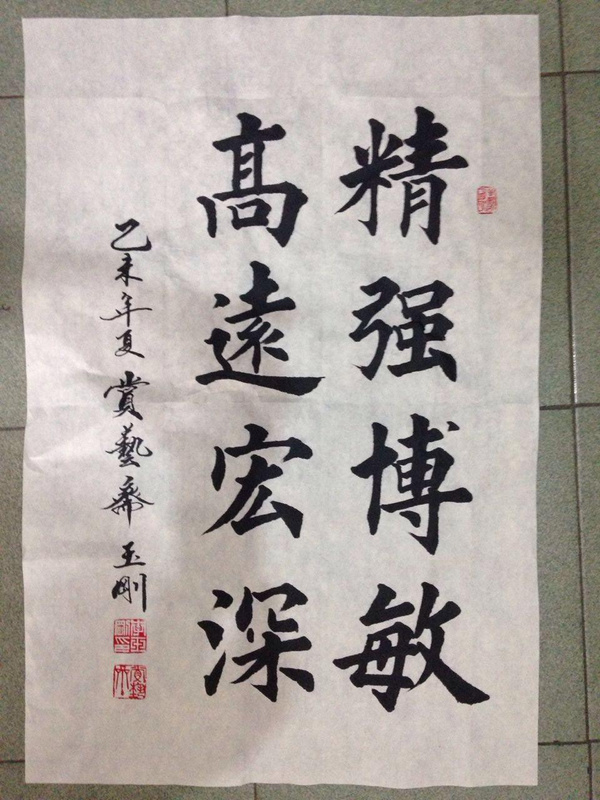 精强博敏
髙遠宏深
乙未年夏賞藝齋玉剛